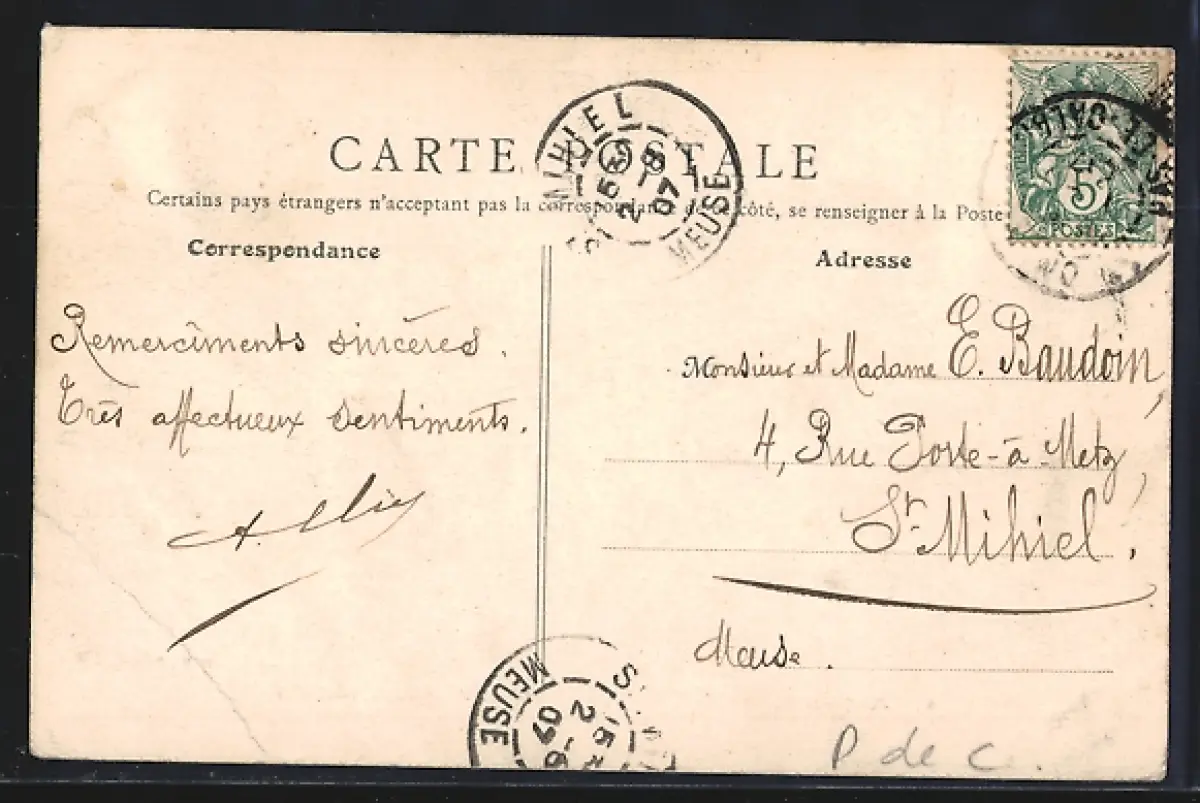 CARTE POSTALE
Certains pays étrangers n'acceptant pas la correspondance de ce côté, se renseigner à la Poste
Correspondance
Adresse
Remercîments sincères.
Très affectueux sentiments.
Monsieur et Madame E. Baudoin,
4, Rue Porte-à-Metz,
St. Mihiel.
Meuse.
P de C.
MIHIEL
MEUSE
07
5
POSTES
MEUSE
07